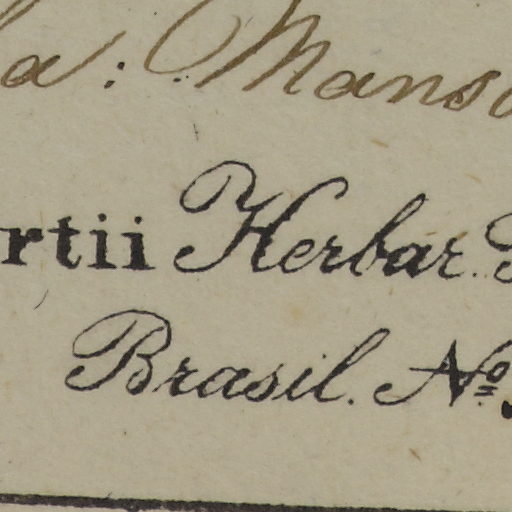 a: Manso
rtii Herbar.
Brasil. Nº